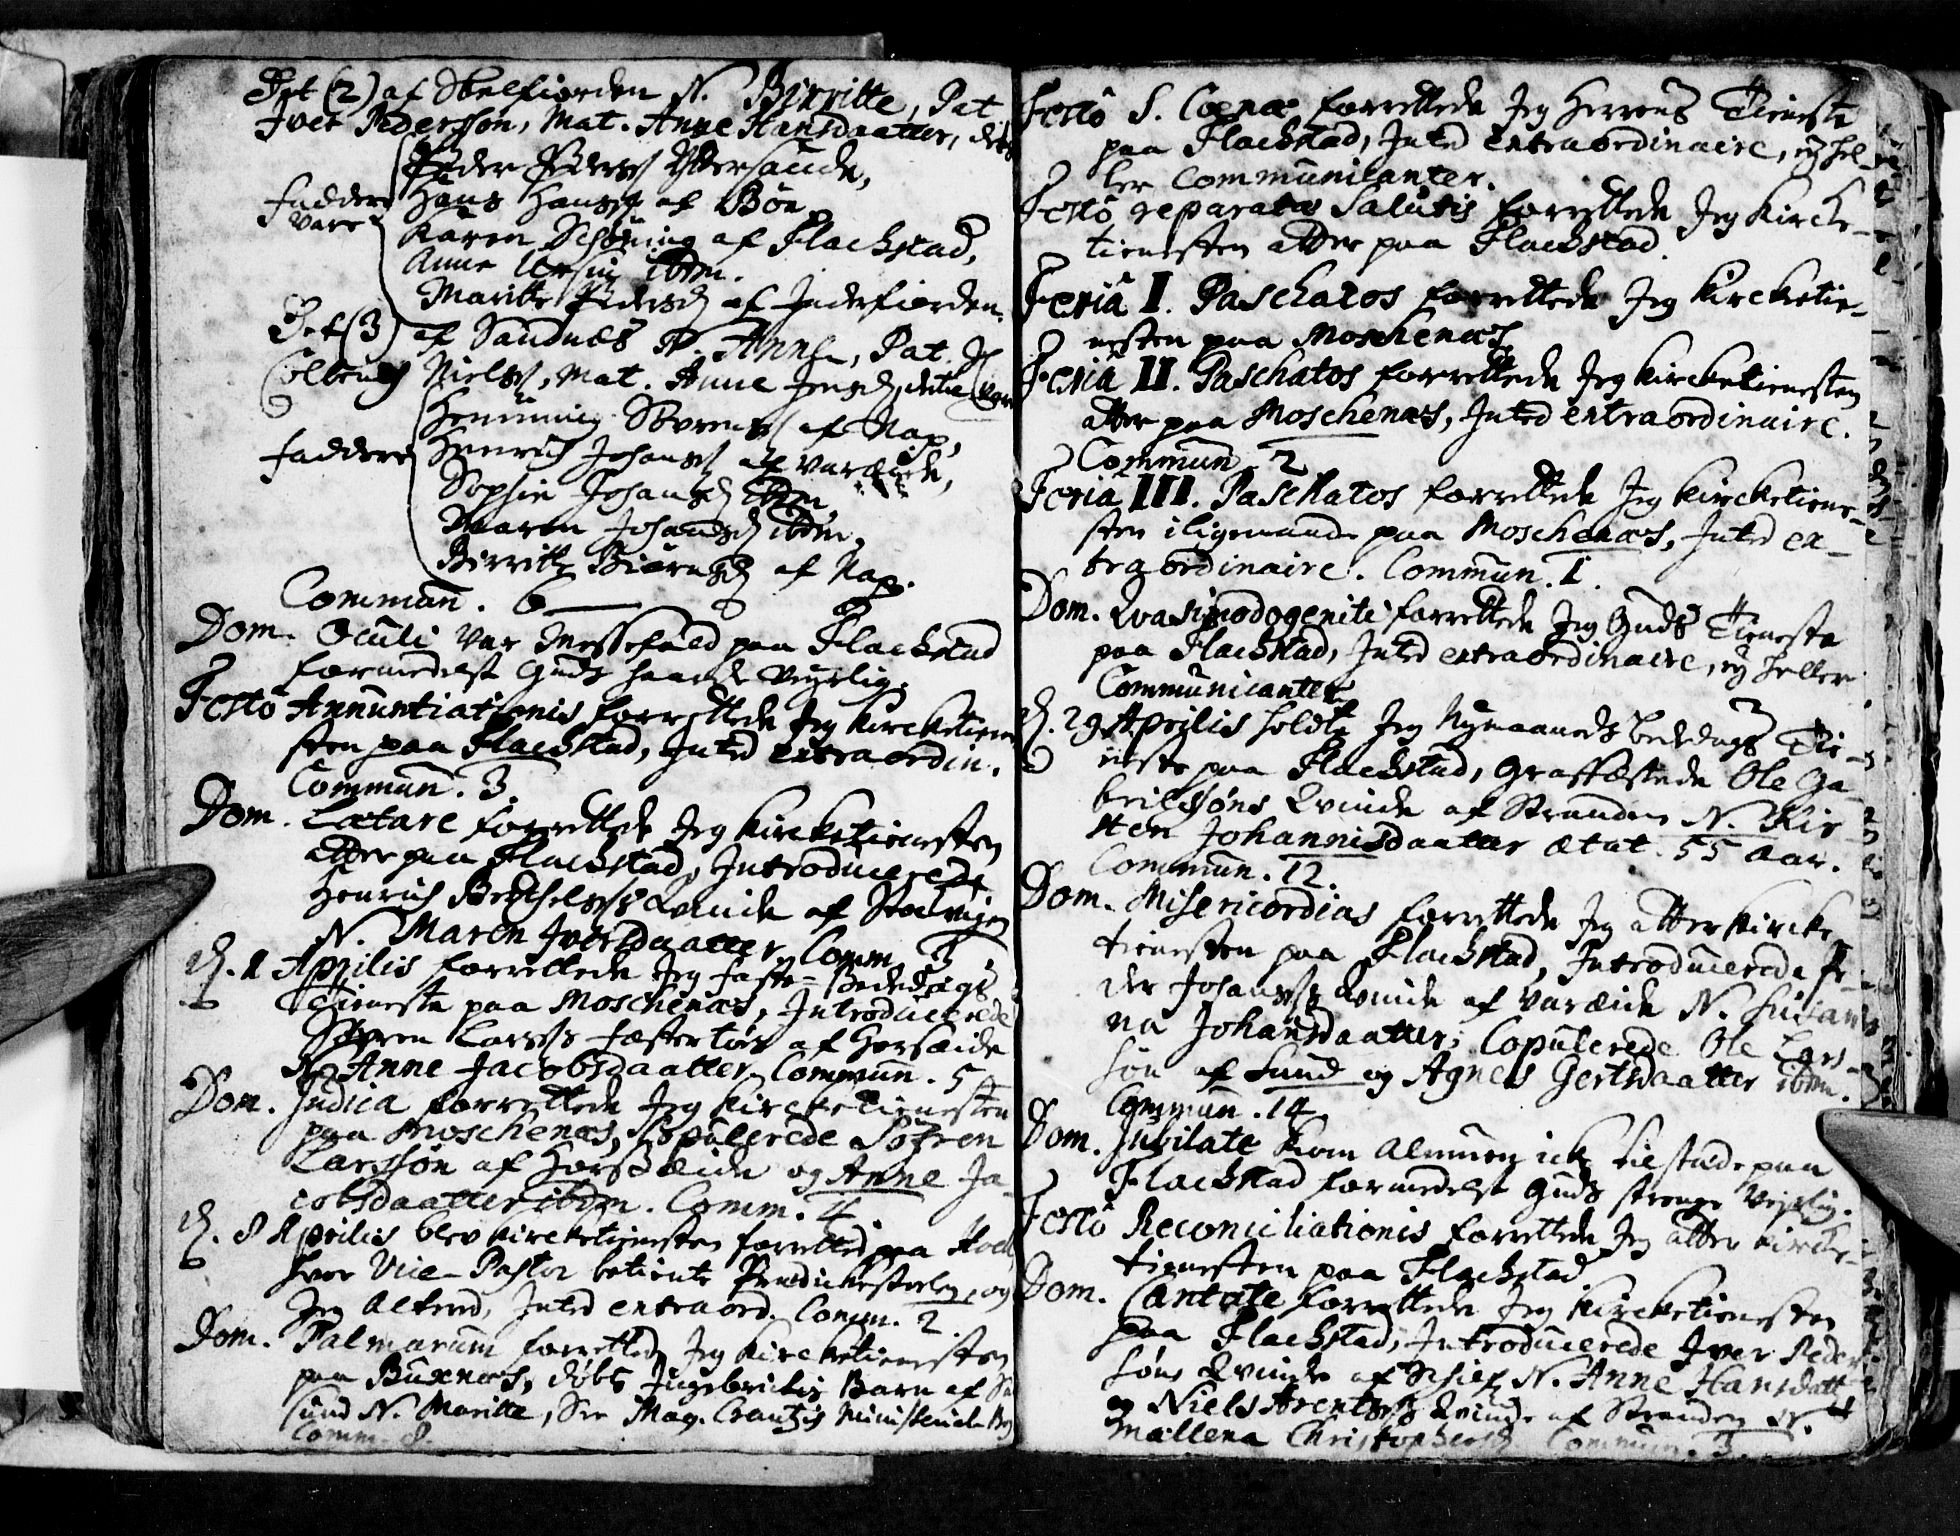 Det (2) af Skelfiorden N. Birritte, Pat
Iver Pedersøn, Mat. Anne Hansdaatter, dito
Peder Pederss Yttersande,
Faddere Hans Hanss af Bøe
vare Karen Schøning af Flackstad,
Anne ibdm.
Maritte Pedersd af Inderfiorden.
Det (3) af Sandnæs N. Anne, Pat.
Nielss, Mat. Anne Jensd,
Henning Sørenss af Nap,
Faddere Henrich Johanss af Varæide,
Sophie Johansd ibdm,
Maren Johansd ibdm,
Birritte Biørnsd af Nap.
Commun. 6
Dom. Oculi var Messefald paa Flackstad
formedelst Guds haarde Vejrlig.
Festô Annuntiationis forrettede Jeg Kircketiene-
sten paa Flackstad, Inted extraordin.
Commun. 3
Dom. Lætare forrettede Jeg Kircketienesten
atter paa Flackstad, Introducerede
Henrich Berthelss Qvinde af
N. Maren Iversdaatter, Comm. 3
d. 1 Aprilis forrettede Jeg Faste-Bededags
Tieneste paa Moschenæs, Introducerede
Søfren Larss Festerløs af Horsæide
N. Anne Jacobsdaatter, Commun. 5
Dom. Judica forrettede Jeg Kircketienesten
paa Moschenæs, Copulerede Søfren
Larssøn af Horsæide og Anne Ja-
cobsdaatter ibdm. Comm. 4
d. 8 Aprilis blev Kircketienesten forrettet paa
hvor Vice-Pastor betiente Prædickestoelen, og
Jeg Altered, Inted extraord. Comm. 2
Dom. Palmarum forrettede Jeg Kircketienesten
paa Buxnæs, døbt Ingebricts Barn af
sund N. Maritte, See Mag. Crantzis Ministeriale
Comm. 8.
Festô S. Cœnæ forrettede Jeg Herrens Tieneste
paa Flackstad, Inted extraordinaire, ej hel-
ler Communicanter.
Festô reparatæ Salutis forrettede Jeg Kircke-
tienesten atter paa Flackstad.
Feriâ I. Paschatos forrettede Jeg Kircketie-
nesten paa Moschenæs
Feriâ II. Paschatos forrettede Jeg Kircketienesten
atter paa Moschenæs, Inted extraordinaire.
Commun. 2
Feriâ III. Paschatos forrettede Jeg Kircketiene-
sten iligemaade paa Moschenæs, Inted ex-
traordinaire. Commun. 1.
Dom. Qvasimodogeniti forrettede Jeg Guds Tieneste
paa Flackstad, Inted extraordinaire, ej heller
Communicanter
d. 29 Aprilis holdte Jeg Nymaaneds bededags Tie-
neste paa Flackstad, Graffæstede Ole Ga-
brielsøns Qvinde af Stranden N. Kir-
sten Johannisdaatter ætat. 55 aar.
Commun. 12.
Dom. Misericordias forrettede Jeg atter Kircke-
tienesten paa Flackstad, Introducerede Pe-
der Johanss Qvinde af Varæide N. Susan-
na Johansdaatter; Copulerede Ole Lars-
søn af Sund og Agnes Gertsdaatter ibdm.
Commun. 14.
Dom. Jubilate kom Almuen ick tilstæde paa
Flackstad formedelst Guds strenge Vejrlig.
Festô Reconciliationis forrettede Jeg atter Kircke-
tienesten paa Flackstad.
Dom. Cantate forrettede Jeg Kircketienesten
paa Flackstad, Introducerede Iver Peder-
søns Qvinde af N. Anne Hansdatt
og Niels Arentss Qvinde af Stranden N.
Mallena Christophersd. Commun. 3.